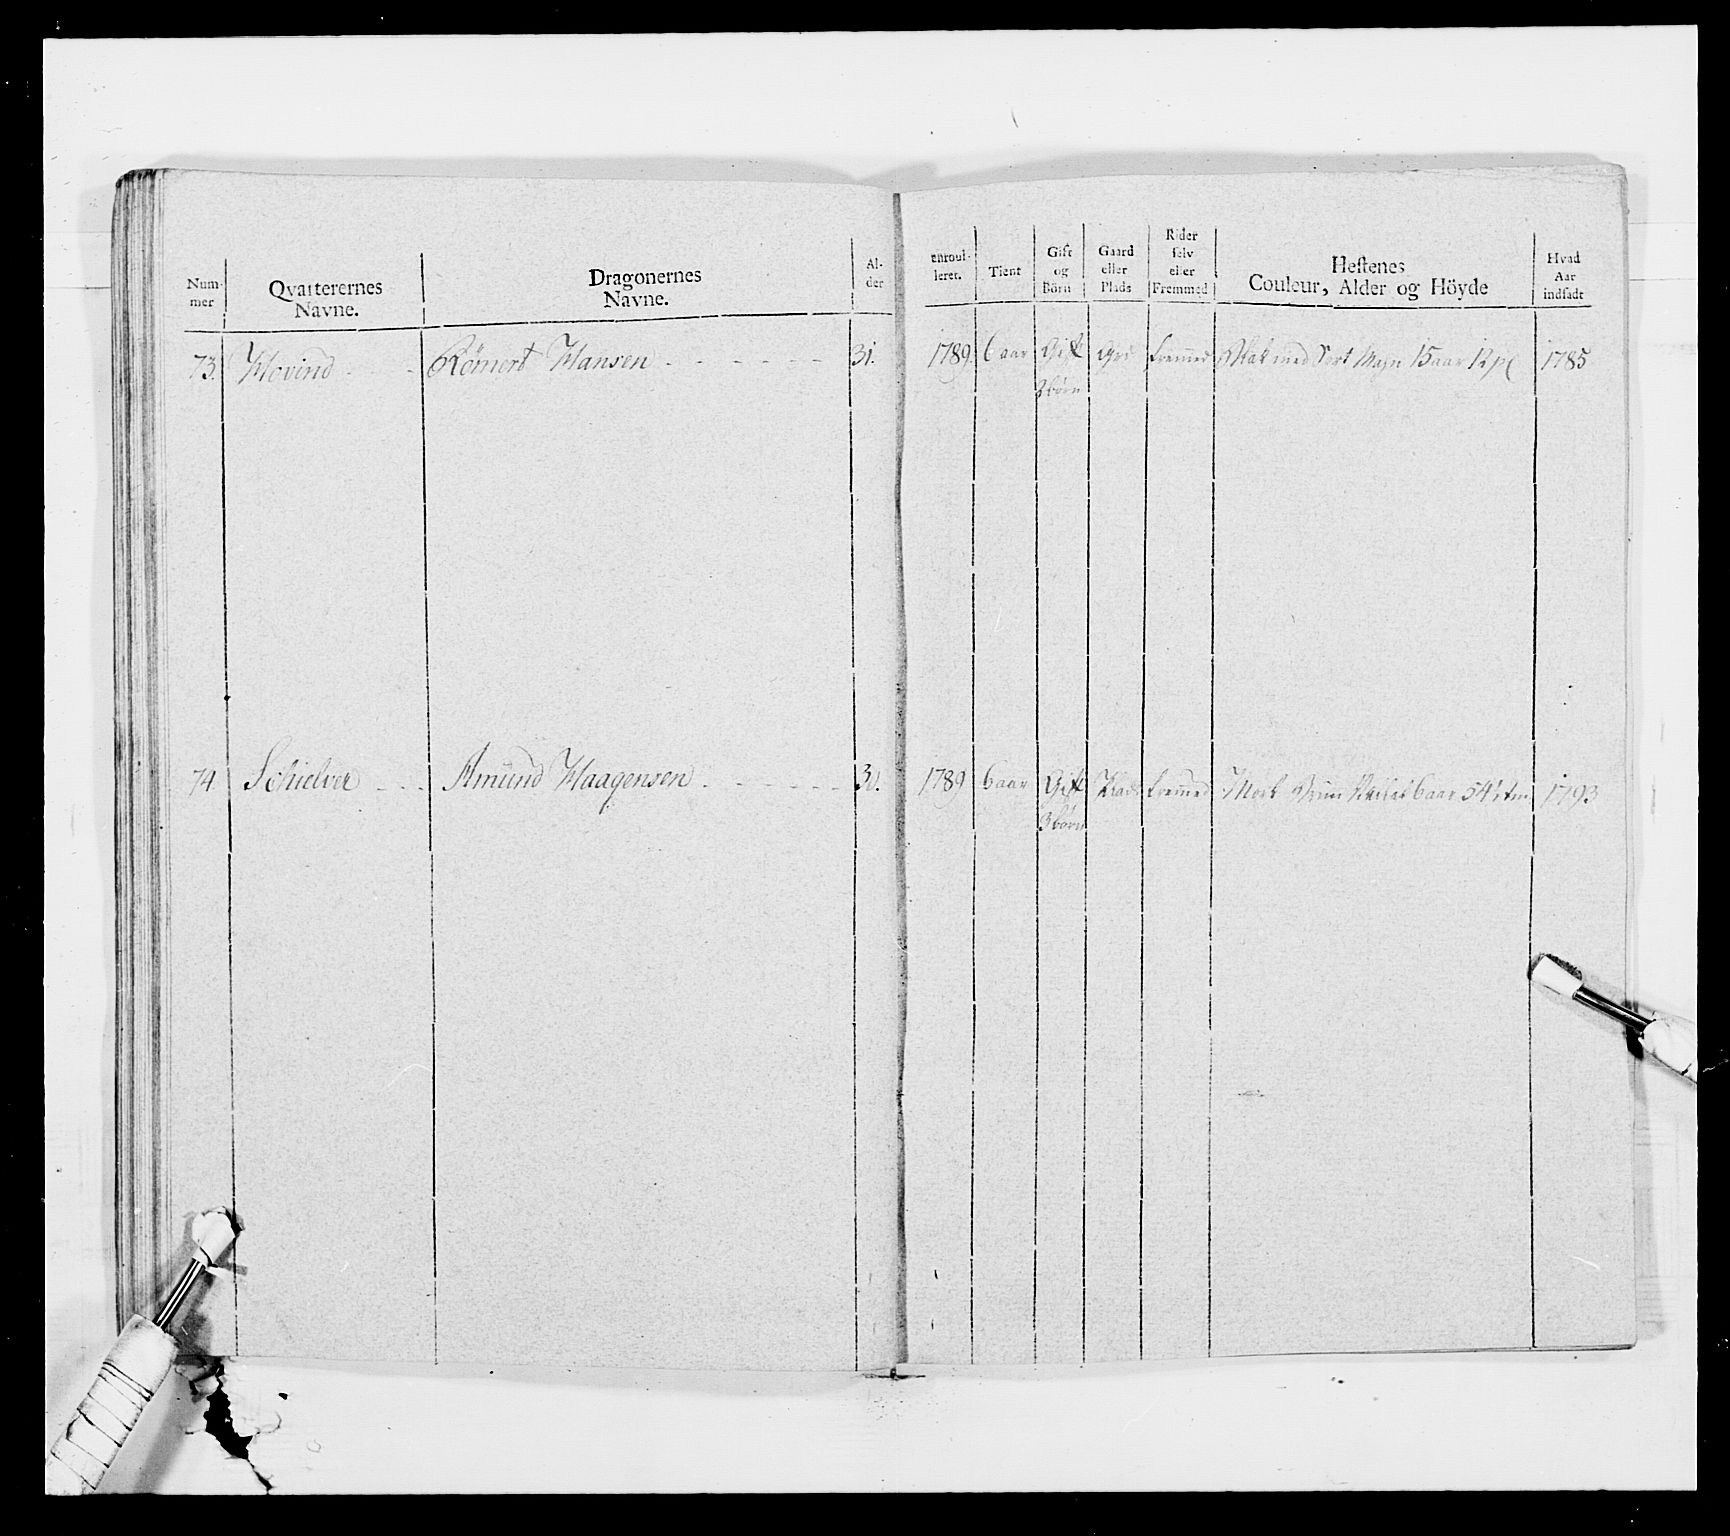 Num-
mer
Qvarterernes
Navne.
Dragonernes
Navne.
Al-
der
enroul-
leret.
Tient
Gift
og
Börn
Gaard
eller
Plads
Rider
selv
eller
Fremmed
Hestenes
Couleur, Alder og Höyde
Hvad
Aar
indsadt
73. Hovind Römert Hansen 31. 1789. 6 aar Gift Grd fremed Blak med Sort Man 15 aar 1785
2 börn
74 Schielver Amund Haagensen 1789 6 aar Gift Plads fremed Mork Brun 6 aar 1793
3 börn